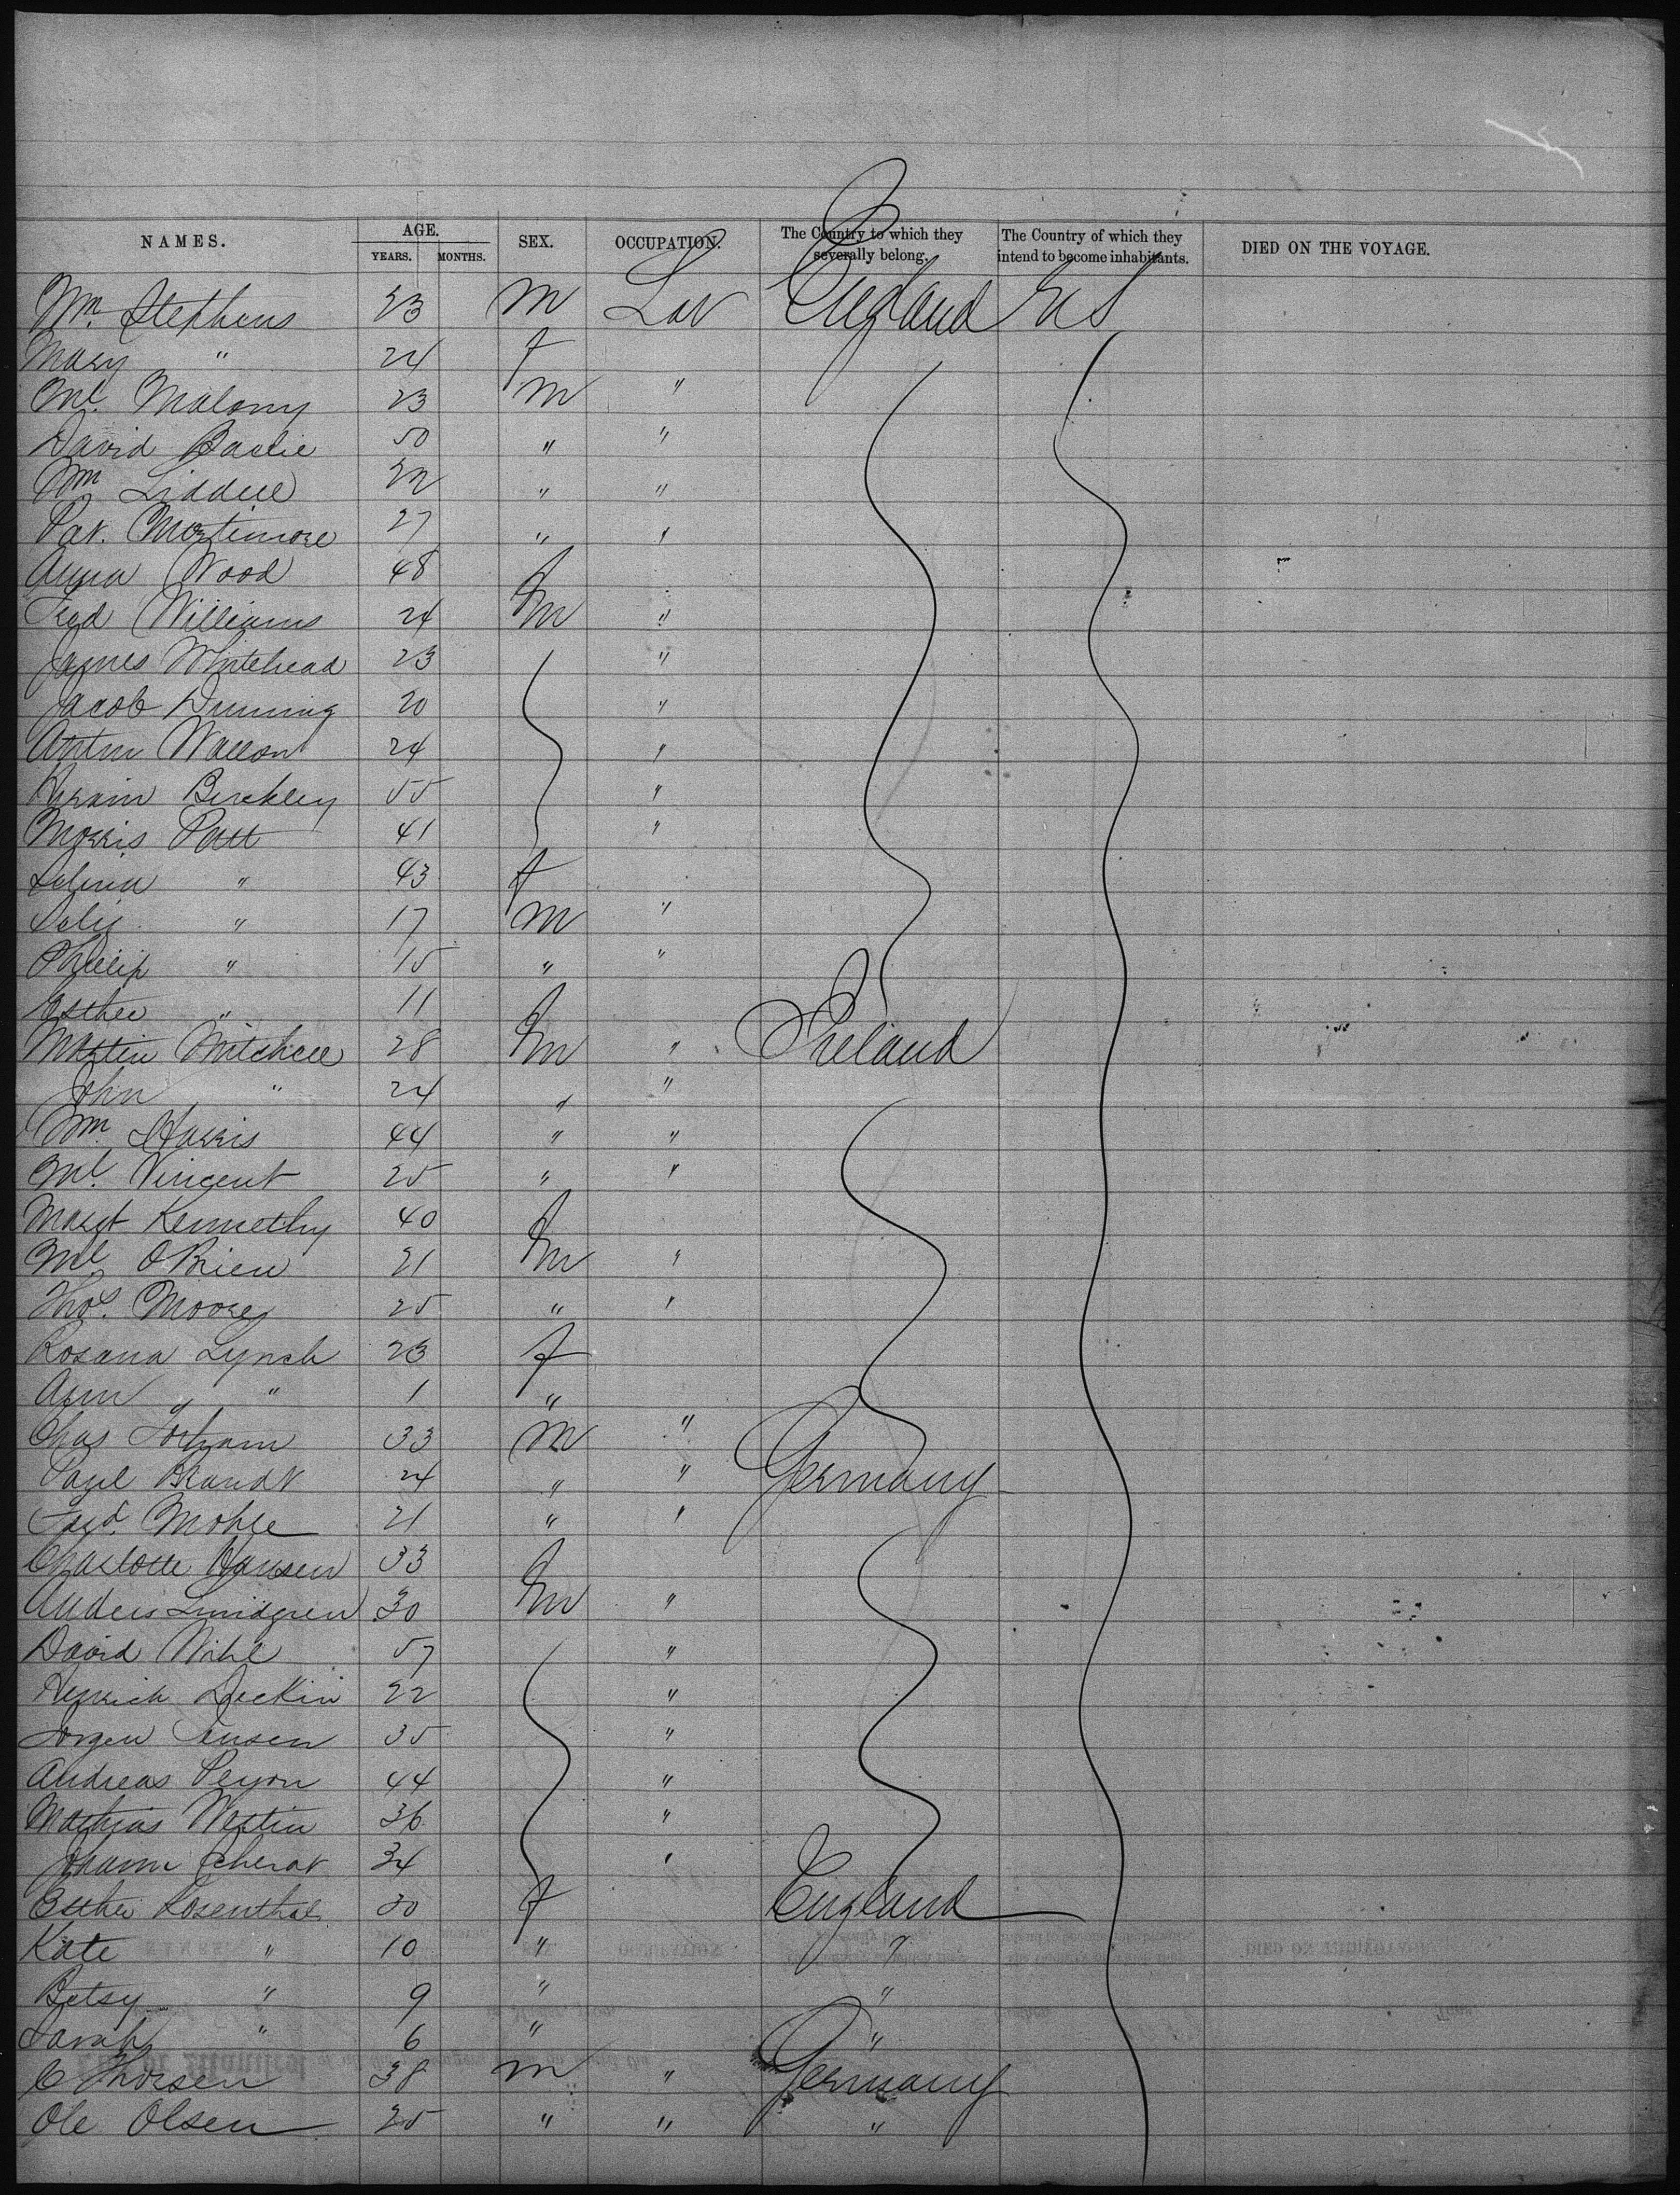 NAMES. AGE. YEARS. MONTHS. SEX. OCCUPATION. The Country to which they severally belong. The Country of which they intend to become inhabitants. DIED ON THE VOYAGE.
Wm. Stephens 23 m Lab England US
Mary " 24 f
Ml. Malony 23 m "
David Baslie 50 " "
Wm Liddell 22 " "
Pat. Mortimore 27 " "
Anna Wood 48 f
Fred Williams 24 m "
James Whitehead 23 "
Jacob Dunning 20 "
24 "
Hiram Berckley 55 "
Morris Patt 41 "
Selina " 43 f
" 17 m "
Phillip " 15 " "
Esther " 11 f
Martin Mitchell 28 m " Ireland
John " 24 " "
Wm. Harris 44 " "
Ml. Vincent 25 " "
Margt Kennethy 40 f
Ml. OBrien 21 m "
Thos. Moore 25 " "
Rosana Lynch 23 f
Ann " " 1 "
Chas 33 m "
Paul Brandt 24 " " Germany
Ferd. Mohle 21 " "
Charlotte Hansen 33 f
Anders Lundgren 30 m "
David 57 "
Henrich Deckin 22 "
Jorgen Jensen 35 "
Andreas 44 "
Mathias Westin 36 "
Johann 34 "
Esther Rosenthal 30 f England
Kate " 10 " "
Betsy " 9 " "
Sarah " 6 " "
C Thorsen 38 m " Germany
Ole Olsen 25 " " "